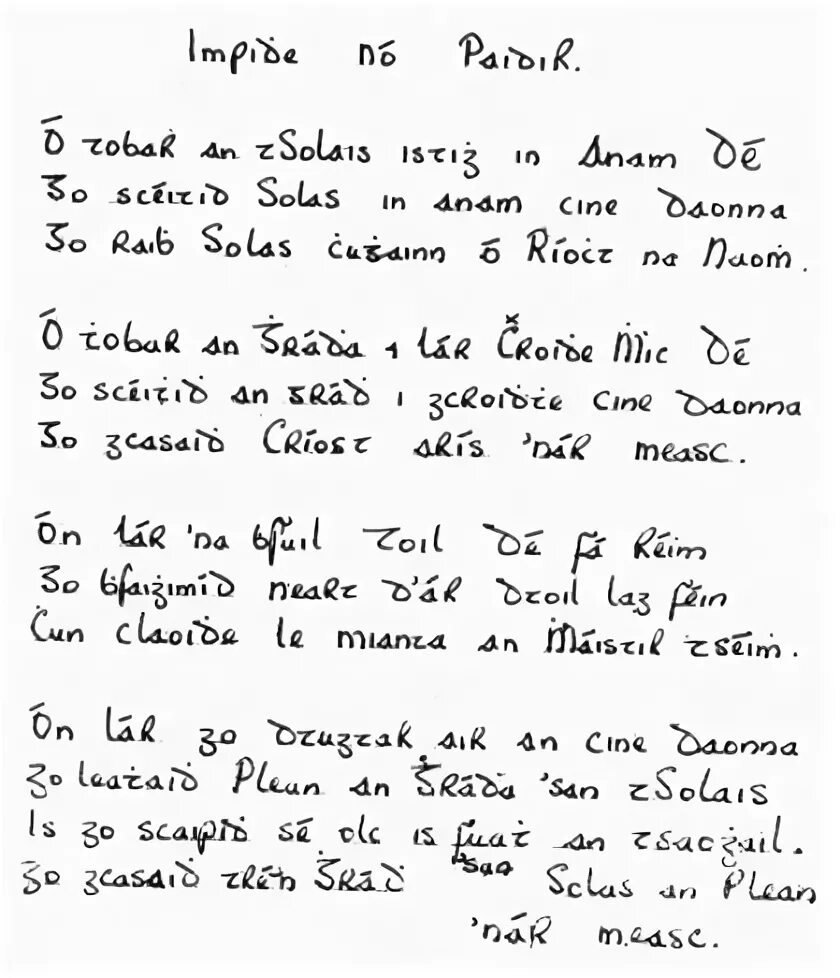 Impide nó Paidir.
Ó tobar an tSolais istiġ in Anam Dé
Go scéitid Solas in anam cine daonna
Go raiḃ Solas ċuġainn ó Ríoċt na Naoṁ.
Ó ṫobar an Ġráda i lár Ċroide Ṁic Dé
Go scéitid an grád i gcroidṫe cine daonna
Go gcasaid Críost arís 'nár measc.
Ón lár 'na bfuil Toil Dé fá réim
Go bfaiġimíd neart d'ár dtoil lag féin
Ċun claoide le mianta an Ṁáistir tséiṁ.
Ón lár go dtugtar air an cine daonna
go leaṫaid Plean an Ġráda 'san tSolais
Is go scaipid sé olc is fuaṫ an tsaoġail.
go gcasaid trén Ġrád 'san Solas an Plean
'nár measc.